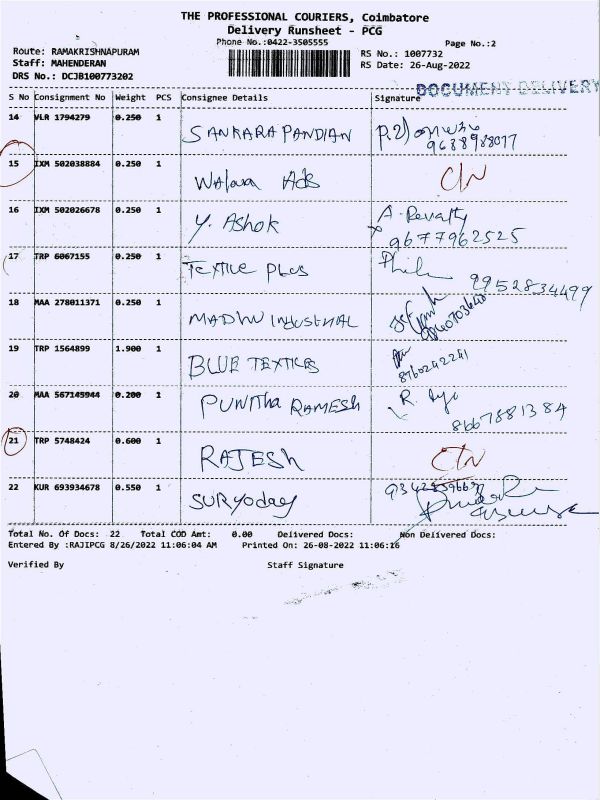 THE PROFESSIONAL COURIERS, Coimbatore
Delivery Runsheet - PCG
Phone No.:0422-3505555
Page No.:2
Route: RAMAKRISHNAPURAM
RS No.: 1007732
Staff: MAHENDERAN
RS Date: 26-Aug-2022
DRS No.: DCJB100773202
DOCUMENT DELIVERY
S No Consignment No Weight PCS Consignee Details Signature
14 VLR 1794279 0.250 1 SANKARA PANDIAN
9688988077
15 IXM 502038884 0.250 1 Ads
16 IXM 502026678 0.250 1 Y. Ashok A. Revathy
9677962525
17 TRP 6067155 0.250 1 TEXTILE PLUS 9952834499
18 MAA 278011371 0.250 1 MADHU INDUSTRIAL
19 TRP 1564899 1.900 1 BLUE TEXTILES
8760242241
20 MAA 567145944 0.200 1 PUNITHA RAMESH R.
8667881384
21 TRP 5748424 0.600 1 RAJESH
22 KUR 693934678 0.550 1 SURYODAY
Total No. Of Docs: 22 Total COD Amt: 0.00 Delivered Docs: Non Delivered Docs:
Entered By :RAJIPCG 8/26/2022 11:06:04 AM Printed On: 26-08-2022 11:06:16
Verified By Staff Signature